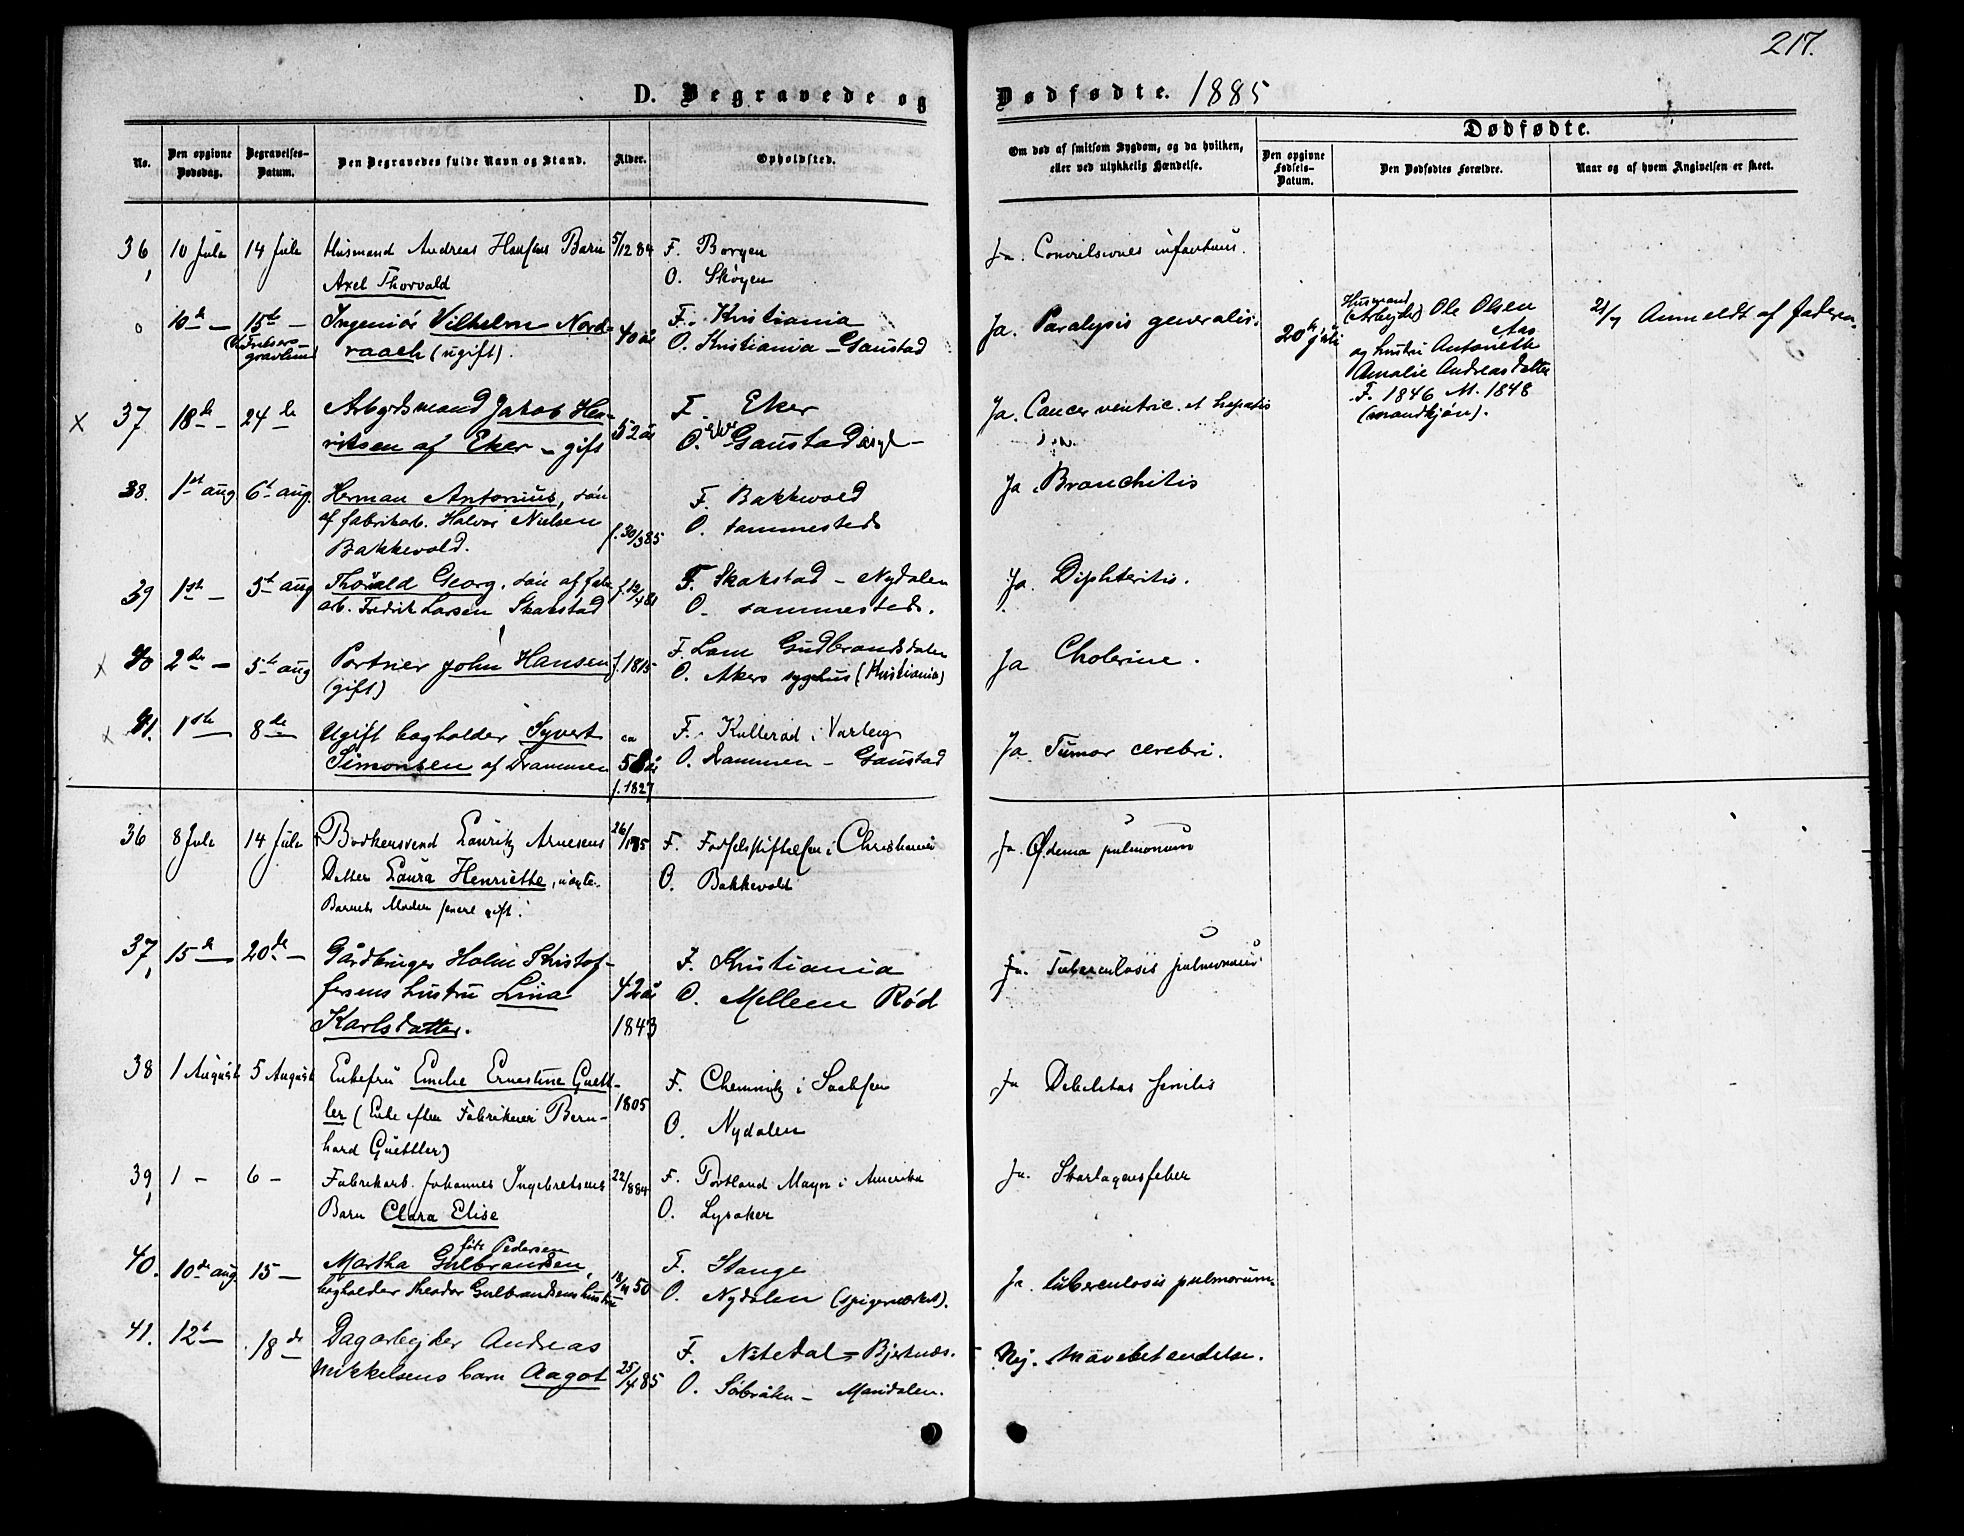 217.
D. Begravede og Dødfødte. 1885
No.
Den opgivne Dødsdag.
Begravelses-Datum.
Den Begravedes fulde Navn og Stand.
Alder.
Opholdsted.
Om død af smitsom Sygdom, og da hvilken, eller ved ulykkelig Hændelse.
Dødfødte.
Den opgivne Fødsels-Datum.
Den Dødfødtes Forældre.
Naar og af hvem Angivelsen er skeet.
36, 10 Juli 14 Juli Husmand Andreas Hansens Barn 5/12 84 F. Borgen Ja. Convulsiones infantum.
Axel Thorvald O. Skøyen
0 10de — 15de — Ingeniør Vilhelm Nord- 40 år F. Kristiania Ja. Paralysis generalis.
(Vor Frelsers gravlund raach (ugift). O. Kristiania – Gaustad
20de juli
Husmand
(Arbejder) Ole Olsen
Aas
og hustru Antonette
Amalie Andreasdatter
F. 1846 M. 1848
(mandkjøn).
21/7 Anmeldt af faderen.
x 37 18de — 24de Arbejdsmand Jakob Hen- 52 år F. Eker Ja. Cancer ventric. et hepatis
riksen af Eker – gift O. Eker Gaustad asyl –
38. 1st aug. 6te aug. Herman Antonius, søn F. Bakkevold Ja. Bronchitis
af fabrikarb. Halvor Nielsen f. 30/3 85 O. sammesteds
Bakkevold.
39 1ste — 5te aug Thorvald Georg. søn af fabr. F. Skarstad – Nydalen Ja. Diphteritis.
arb. Fredrik Larsen Skarstad O. sammesteds.
x 40 2den — 5te aug Portner John Hansen f. 1815 F. Lom Gudbrandsdalen Ja Cholerine.
(gift) O. Akers sygehus (Kristiania)
x 41. 1ste — 8de Ugift bogholder Syvert ca F. Kullerød i Varteig Ja Tumor cerebri.
Simonsen af Drammen 58 år O. Drammen – Gaustad
f. 1827
36 8 Juli 14 Juli Bødkersvend Lauritz Arnesens 26/1 85 F. Fødselsstiftelsen i Christiania Ja. Ødema pulmonum
Datter Laura Henriette, uægte. O. Bakkevold
Barnets Moder senere gift.
37, 15de — 20de — Gårdbruger Holm Kristof- F. Kristiania Ja. Tuberculosis pulmonum
fersens hustru Lina 42 år O. Mellem Rød
Karlsdatter. 1843
38 1 August 5 August Enkefru Emilie Ernestine Guett- 1805 F. Chemnitz i Sachsen Ja Debilitas senilis
ler (Enke efter Fabrikeier Bern- O. Nydalen
hard Guettler)
39, 1 – 6 – Fabrikarb. Johannes Ingebretsens 22/8 84 F. Portland Mayn i Amerika Ja. Skarlagensfeber
Barn Clara Elise O. Lysaker
født Pedersen
40. 10de aug 15 — Martha Gulbrandsen, F. Stange Ja. tuberculosis pulmonum.
bogholder Theodor Gulbrandsens hustru 50 O. Nydalen (spigerverket).
41. 12te — 18de Dagarbejder Andreas F. Nitedal – Bjertnæs. Nej. Mavebetændelse.
Mikkelsens barn Aagot 25/4 85 O. Maridalen.